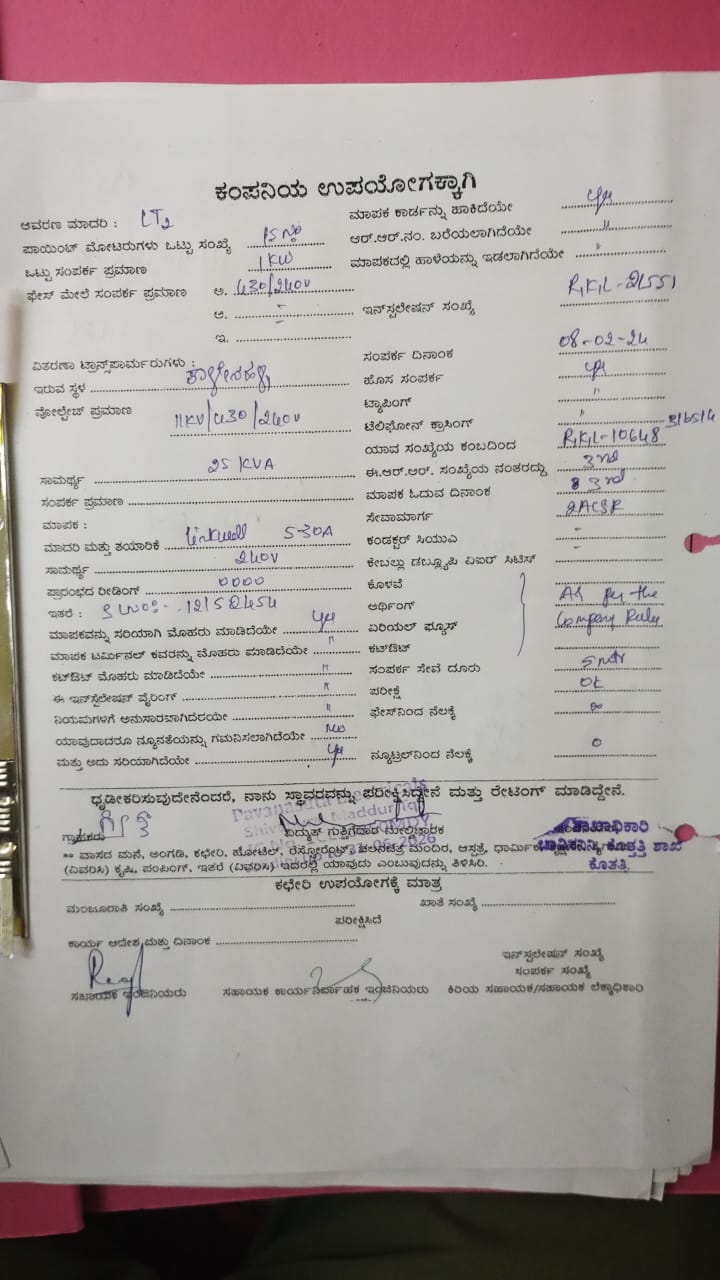 ಕಂಪನಿಯ ಉಪಯೋಗಕ್ಕಾಗಿ
ಆವರಣ ಮಾದರಿ : LT2
ಮಾಪಕ ಕಾರ್ಡನ್ನು ಹಾಕಿದೆಯೇ yes
ಪಾಯಿಂಟ್ ಮೋಟರುಗಳು ಒಟ್ಟು ಸಂಖ್ಯೆ
ಆರ್.ಆರ್.ನಂ. ಬರೆಯಲಾಗಿದೆಯೇ "
ಒಟ್ಟು ಸಂಪರ್ಕ ಪ್ರಮಾಣ 1KW
ಮಾಪಕದಲ್ಲಿ ಹಾಳೆಯನ್ನು ಇಡಲಾಗಿದೆಯೇ "
ಫೇಸ್ ಮೇಲೆ ಸಂಪರ್ಕ ಪ್ರಮಾಣ ಅ. 430/240V
ಆ. -
ಇನ್‌ಸ್ಟಲೇಷನ್ ಸಂಖ್ಯೆ
ಇ.
ವಿತರಣಾ ಟ್ರಾನ್ಸ್‌ಪಾರ್ಮರುಗಳು :
ಸಂಪರ್ಕ ದಿನಾಂಕ 08-02-24
ಇರುವ ಸ್ಥಳ
ಹೊಸ ಸಂಪರ್ಕ yes
ವೋಲ್ಟೇಜ್ ಪ್ರಮಾಣ 11KV/430/240V
ಟ್ಯಾಪಿಂಗ್ "
ಟೆಲಿಫೋನ್ ಕ್ರಾಸಿಂಗ್ "
ಯಾವ ಸಂಖ್ಯೆಯ ಕಂಬದಿಂದ
ಸಾಮರ್ಥ್ಯ 25 KVA
ಈ.ಆರ್.ಆರ್. ಸಂಖ್ಯೆಯ ನಂತರದ್ದು 3rd
ಸಂಪರ್ಕ ಪ್ರಮಾಣ
ಮಾಪಕ ಓದುವ ದಿನಾಂಕ 3rd
ಮಾಪಕ :
ಸೇವಾಮಾರ್ಗ 2ACSR
ಮಾದರಿ ಮತ್ತು ತಯಾರಿಕೆ Linkwell 5-30A
ಕಂಡಕ್ಟರ್ ಸಿಯುವಿ -
ಸಾಮರ್ಥ್ಯ 240V
ಕೇಬಲ್ಲು ಡಬ್ಲ್ಯೂಪಿ ವಿಐರ್ ಸಿಟಿಸ್ -
ಪ್ರಾರಂಭದ ರೀಡಿಂಗ್ 0000
ಕೊಳವೆ
ಇತರೆ :
ಅರ್ಥಿಂಗ್ As per the
ಮಾಪಕವನ್ನು ಸರಿಯಾಗಿ ಮೊಹರು ಮಾಡಿದೆಯೇ yes
ಏರಿಯಲ್ ಫ್ಯೂಸ್ Company Rules
ಮಾಪಕ ಟರ್ಮಿನಲ್ ಕವರನ್ನು ಮೊಹರು ಮಾಡಿದೆಯೇ "
ಕಟ್‌ಔಟ್
ಕಟ್‌ಔಟ್ ಮೊಹರು ಮಾಡಿದೆಯೇ "
ಸಂಪರ್ಕ ಸೇವೆ ದೂರು 5 mtr
ಈ ಇನ್‌ಸ್ಟಲೇಷನ್ ವೈರಿಂಗ್ "
ಪರೀಕ್ಷೆ OK
ನಿಯಮಗಳಿಗೆ ಅನುಸಾರವಾಗಿದೆಯೇ "
ಫೇಸ್‌ನಿಂದ ನೆಲಕ್ಕೆ
ಯಾವುದಾದರೂ ನ್ಯೂನತೆಯನ್ನು ಗಮನಿಸಲಾಗಿದೆಯೇ No
ಮತ್ತು ಅದು ಸರಿಯಾಗಿದೆಯೇ yes
ನ್ಯೂಟ್ರಲ್‌ನಿಂದ ನೆಲಕ್ಕೆ 0
ಧೃಡೀಕರಿಸುವುದೇನೆಂದರೆ, ನಾನು ಸ್ಥಾವರವನ್ನು ಪರೀಕ್ಷಿಸಿದ್ದೇನೆ ಮತ್ತು ರೇಟಿಂಗ್ ಮಾಡಿದ್ದೇನೆ.
ಗ್ರಾಹಕರು ವಿದ್ಯುತ್ ಗುತ್ತಿಗೆದಾರ ಮೇಲ್ವಿಚಾರಕ ಶಾಖಾಧಿಕಾರಿ
** ವಾಸದ ಮನೆ, ಅಂಗಡಿ, ಕಛೇರಿ, ಹೋಟೆಲ್, ರೆಸ್ಟೋರೆಂಟ್, ಚಲನಚಿತ್ರ ಮಂದಿರ, ಆಸ್ಪತ್ರೆ, ಧಾರ್ಮಿಕ
(ವಿವರಿಸಿ) ಕೃಷಿ, ಪಂಪಿಂಗ್, ಇತರೆ (ವಿವರಿಸಿ) ಇದರಲ್ಲಿ ಯಾವುದು ಎಂಬುವುದನ್ನು ತಿಳಿಸಿರಿ. ಕೊತ್ತತ್ತಿ
ಕಛೇರಿ ಉಪಯೋಗಕ್ಕೆ ಮಾತ್ರ
ಮಂಜೂರಾತಿ ಸಂಖ್ಯೆ ಖಾತೆ ಸಂಖ್ಯೆ
ಪರೀಕ್ಷಿಸಿದೆ
ಕಾರ್ಯ ಆದೇಶ ಮತ್ತು ದಿನಾಂಕ
ಇನ್‌ಸ್ಟಲೇಷನ್ ಸಂಖ್ಯೆ
ಸಂಪರ್ಕ ಸಂಖ್ಯೆ
ಸಹಾಯಕ ಇಂಜಿನಿಯರು ಸಹಾಯಕ ಕಾರ್ಯನಿರ್ವಾಹಕ ಇಂಜಿನಿಯರು ಕಿರಿಯ ಸಹಾಯಕ/ಸಹಾಯಕ ಲೆಕ್ಕಾಧಿಕಾರಿ